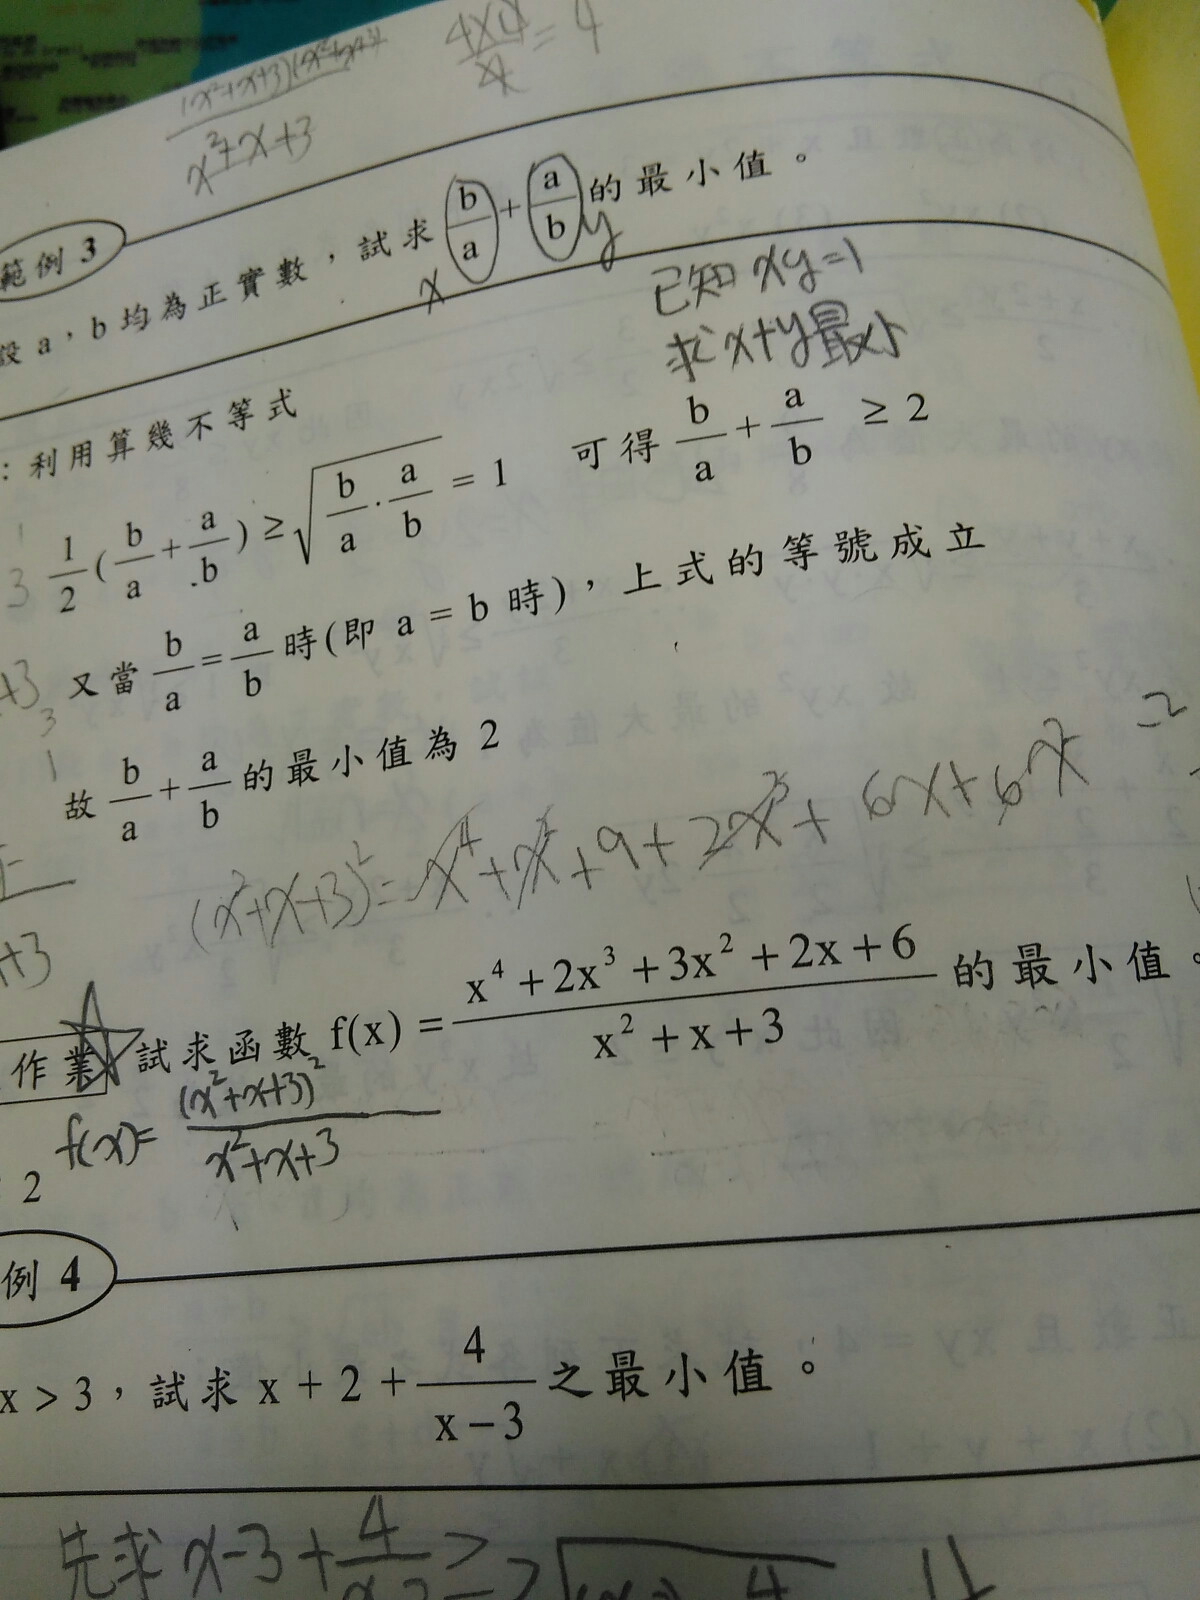 (x²+x+3)(x²+x+3)
x²+x+3
4×4
4
= 4
範例 3
設 a，b 均為正實數，試求 b/a + a/b 的最小值。
x
y
已知 xy=1
求 x+y 最小
：利用算幾不等式
1/2 (b/a + a/b) ≥ √(b/a · a/b) = 1 可得 b/a + a/b ≥ 2
又當 b/a = a/b 時(即 a = b 時)，上式的等號成立
故 b/a + a/b 的最小值為 2
(x²+x+3)² = x⁴+x²+9+2x³+6x+6x²
作業 試求函數 f(x) = (x⁴ + 2x³ + 3x² + 2x + 6)/(x² + x + 3) 的最小值。
f(x) = (x²+x+3)²/(x²+x+3)
2
例 4
x > 3，試求 x + 2 + 4/(x − 3) 之最小值。
先求 x-3+